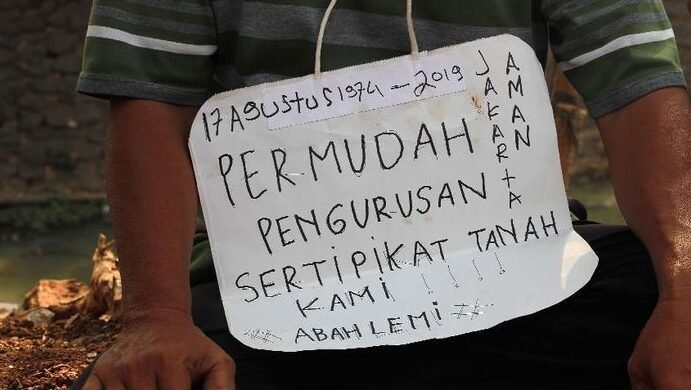 17 AGUSTUS 1974 - 2019
PERMUDAH
PENGURUSAN
SERTIPIKAT TANAH
KAMI ! ! ! !
ABAH LEMI
JAKARTA
AMAN